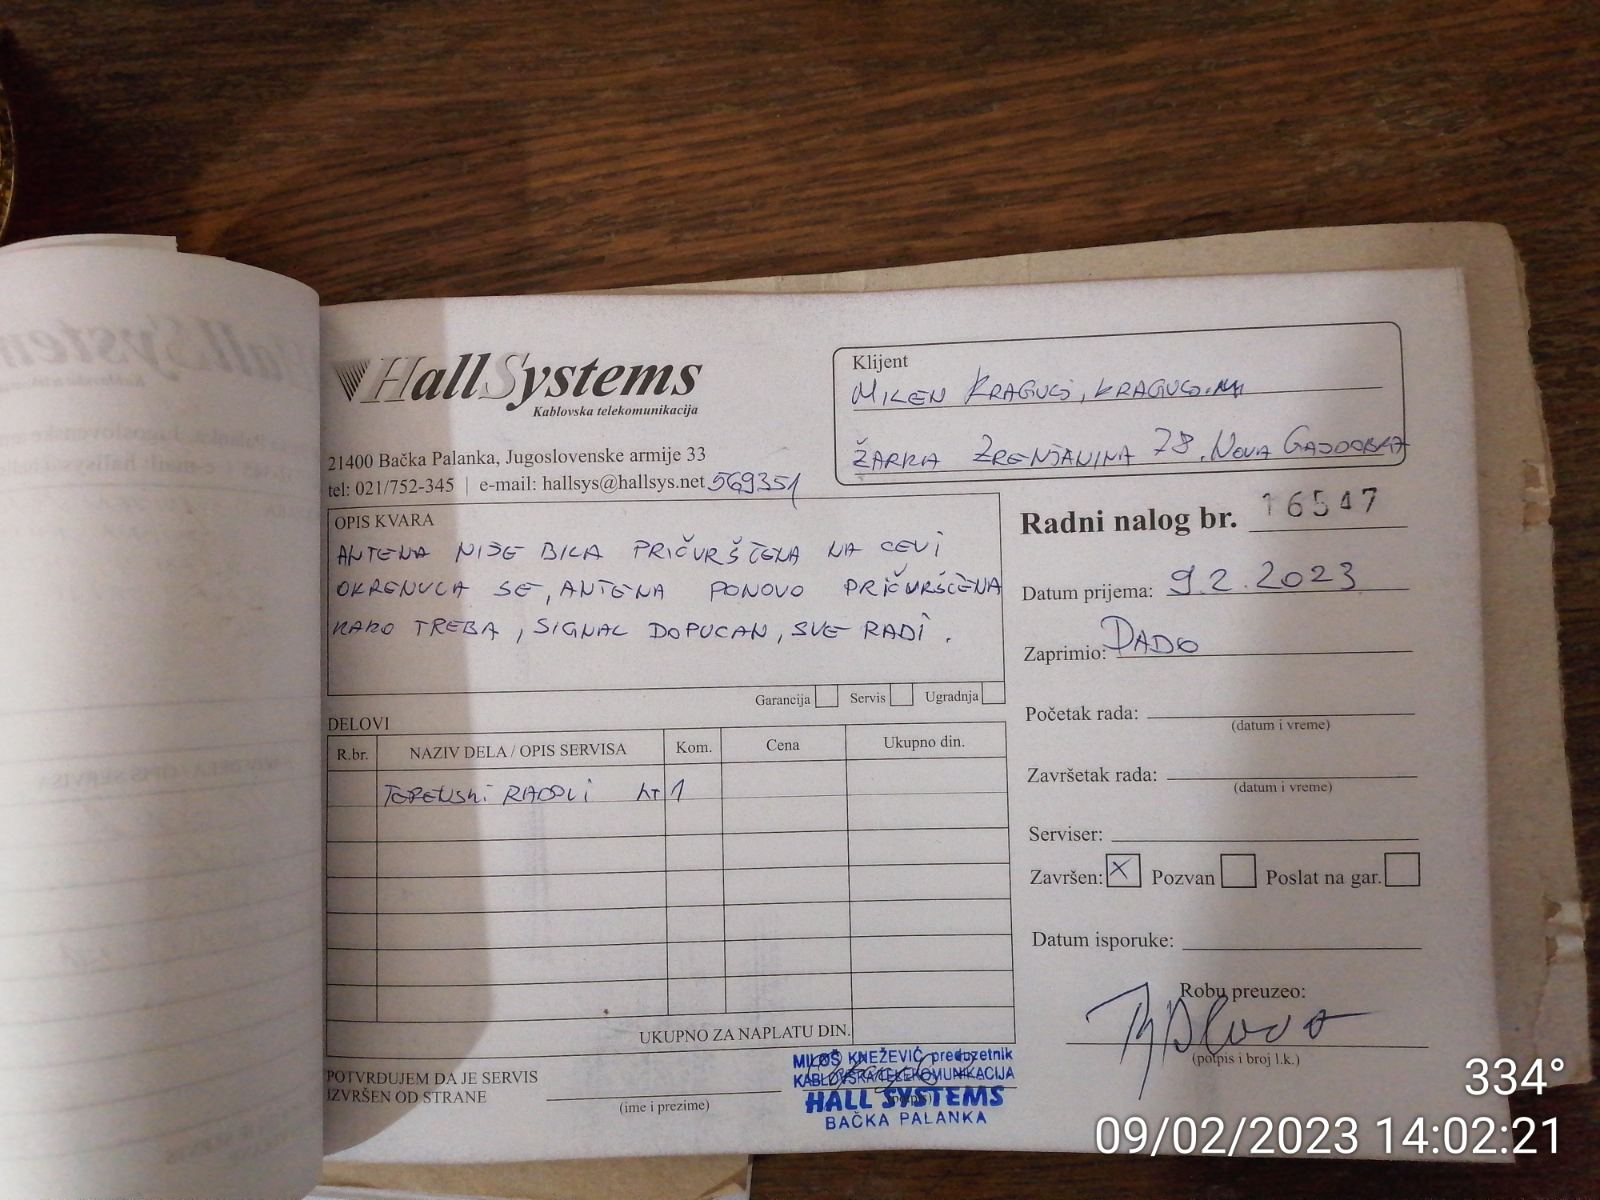 HallSystems
Kablovska telekomunikacija
21400 Bačka Palanka, Jugoslovenske armije 33
tel: 021/752-345 | e-mail: hallsys@hallsys.net 569351
Klijent
MILEN KRAGULJ, KRAGULJ.MI
ŽARKA ZRENJANINA 78, NOVA GAJDOBRA
OPIS KVARA
ANTENA NIJE BILA PRIČVRŠĆENA NA CEVI
OKRENULA SE, ANTENA PONOVO PRIČVRŠĆENA
KAKO TREBA, SIGNAL DOPUCAN, SVE RADI.
Garancija Servis Ugradnja
Radni nalog br. 16547
Datum prijema: 9.2.2023
Zaprimio: DADO
Početak rada:
(datum i vreme)
Završetak rada:
(datum i vreme)
Serviser:
Završen: X Pozvan Poslat na gar.
Datum isporuke:
Robu preuzeo:
(potpis i broj l.k.)
DELOVI
R.br. NAZIV DELA / OPIS SERVISA Kom. Cena Ukupno din.
TERENSKI RADOVI 1
UKUPNO ZA NAPLATU DIN.
POTVRĐUJEM DA JE SERVIS
IZVRŠEN OD STRANE
(ime i prezime)
MILOŠ KNEŽEVIĆ preduzetnik
KABLOVSKA TELEKOMUNIKACIJA
HALL SYSTEMS
BAČKA PALANKA
334°
09/02/2023 14:02:21